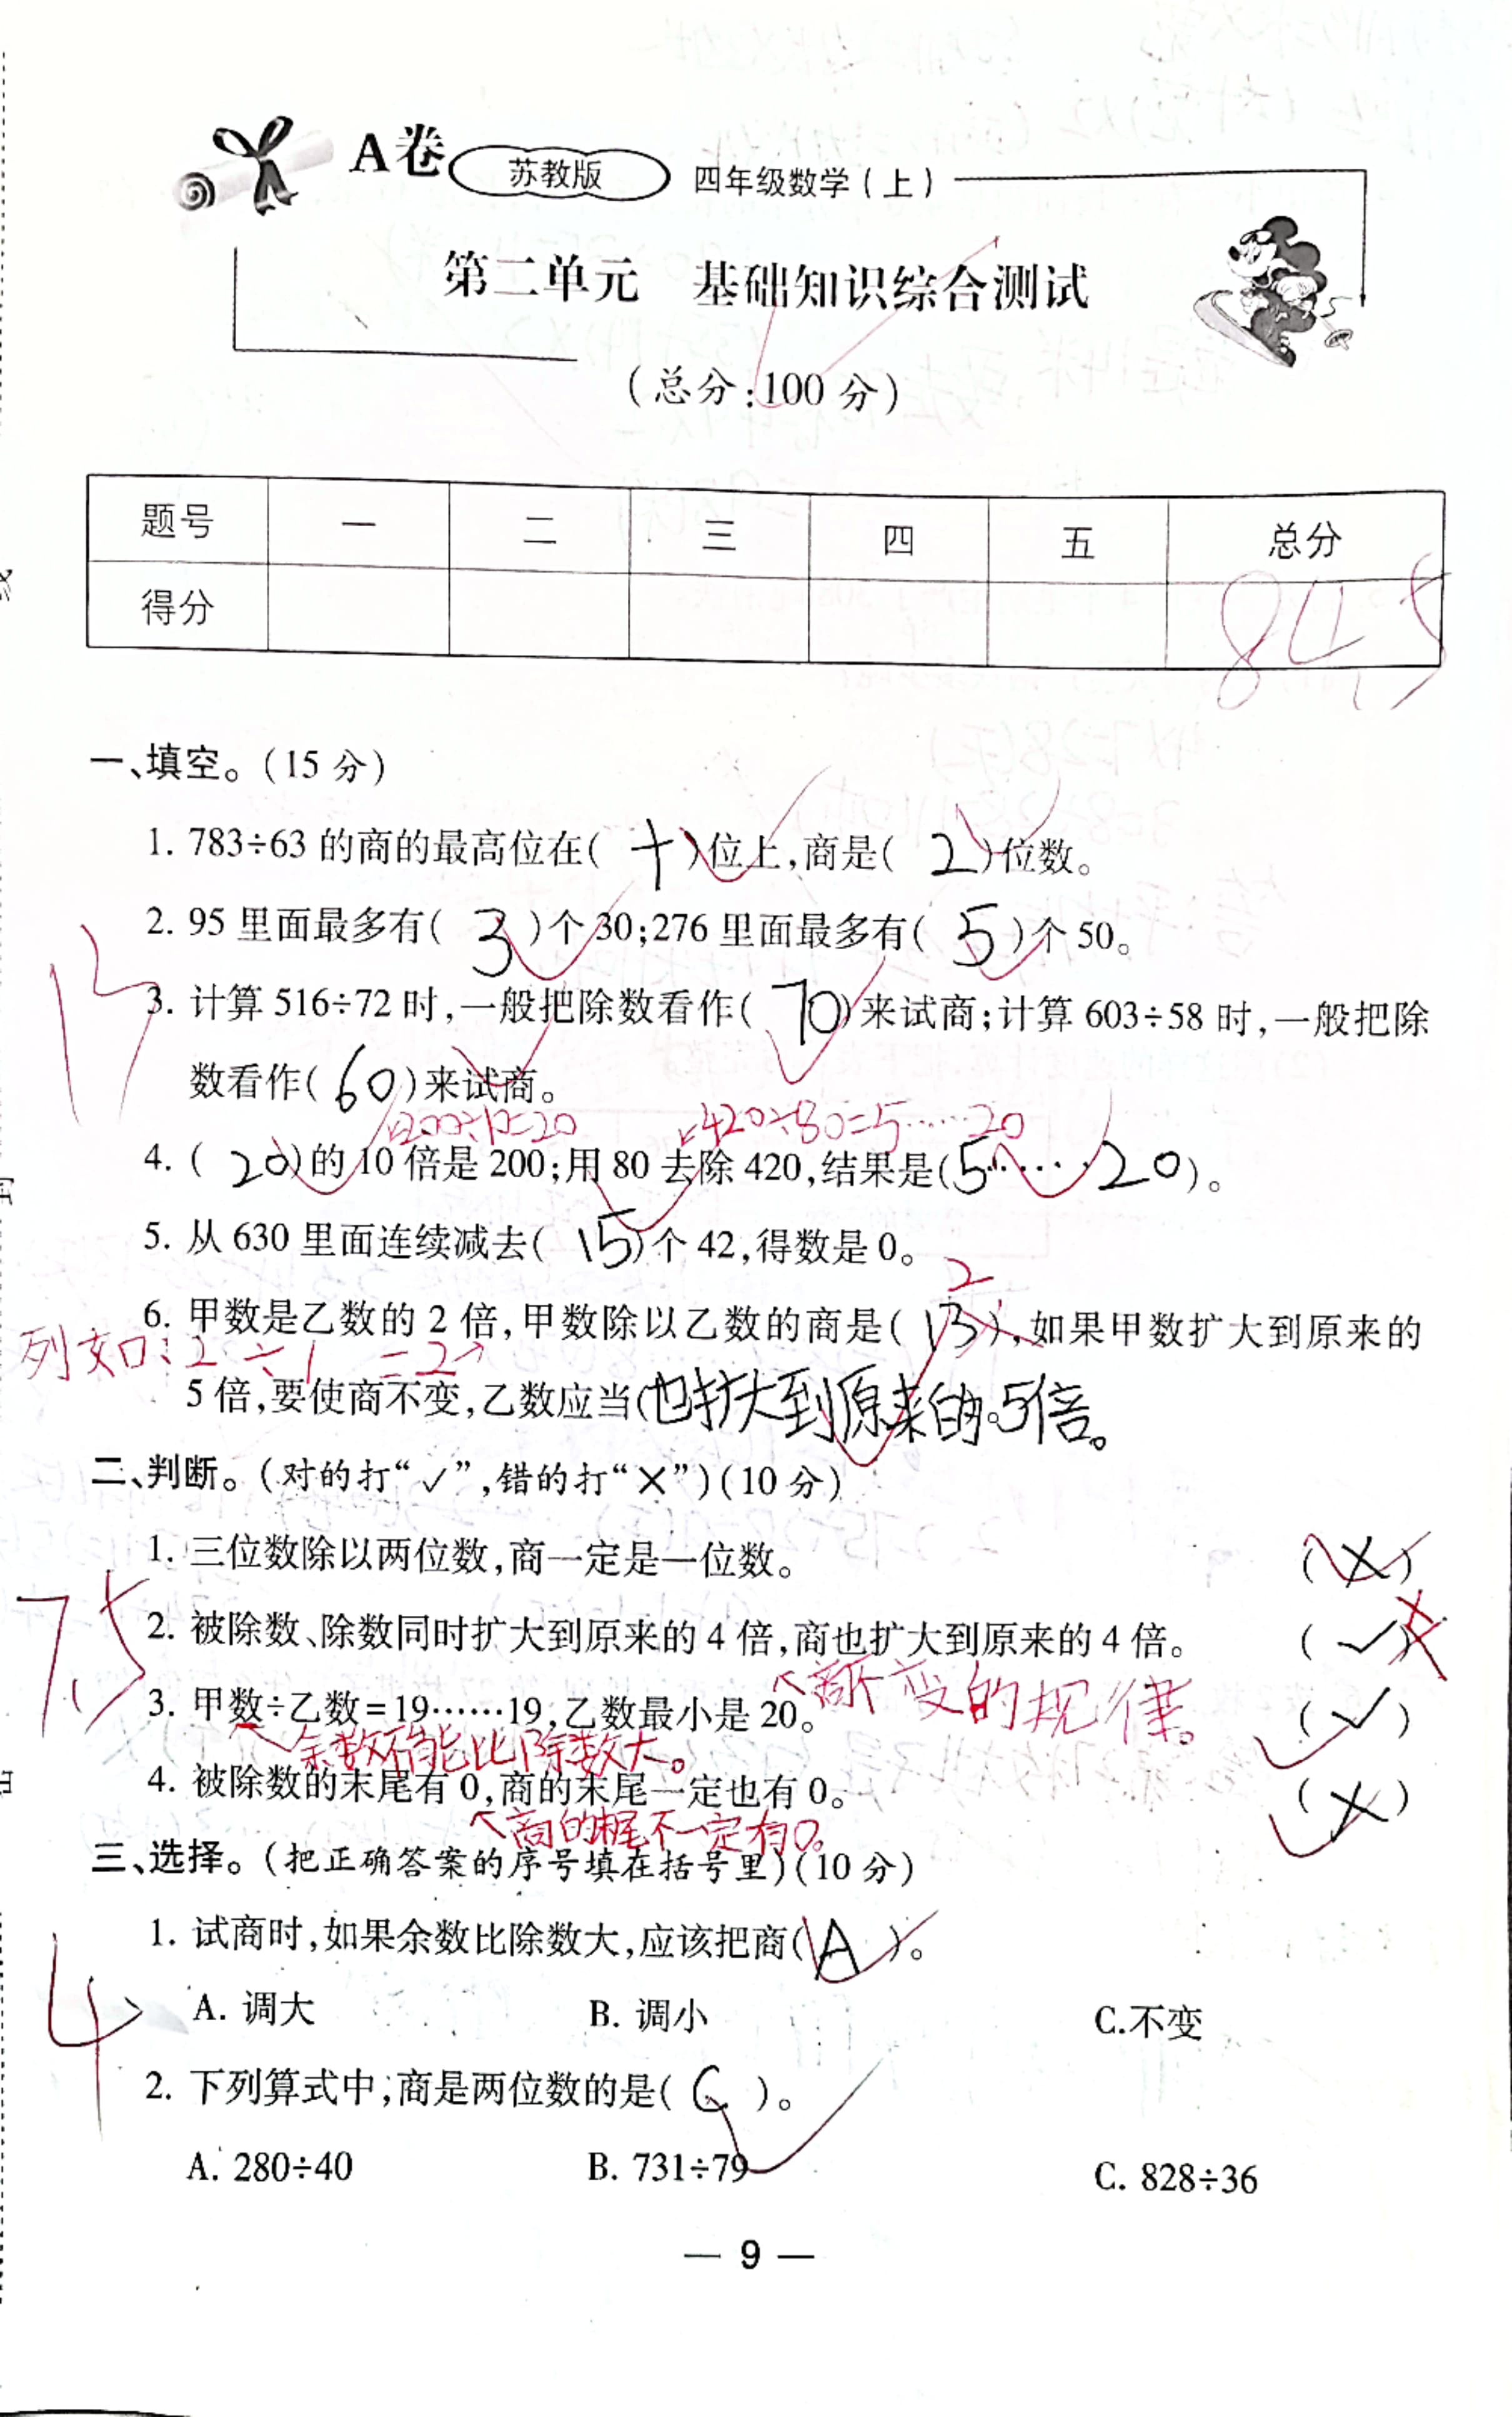 A卷 苏教版 四年级数学(上)
第二单元 基础知识综合测试
(总分:100分)
题号 一 二 三 四 五 总分
得分 84.5
一、填空。(15分)
1. 783÷63的商的最高位在( 十 )位上,商是( 2 )位数。
2. 95里面最多有( 3 )个30;276里面最多有( 5 )个50。
13
3. 计算516÷72时,一般把除数看作( 70 )来试商;计算603÷58时,一般把除
数看作( 60 )来试商。
200÷10=20 420÷80=5……20
4. ( 20 )的10倍是200;用80去除420,结果是(5……20)。
5. 从630里面连续减去( 15 )个42,得数是0。
2
6. 甲数是乙数的2倍,甲数除以乙数的商是( 13 ),如果甲数扩大到原来的
列如:2÷1=2
5倍,要使商不变,乙数应当(也扩大到原来的5倍。
二、判断。(对的打“✓”,错的打“×”)(10分)
1. 三位数除以两位数,商一定是一位数。 (×)
7.5
2. 被除数、除数同时扩大到原来的4倍,商也扩大到原来的4倍。 (✓)×
商不变的规律。
3. 甲数÷乙数=19……19,乙数最小是20。 (✓)
余数不能比除数大。
4. 被除数的末尾有0,商的末尾一定也有0。 (×)
商的末尾不一定有0。
三、选择。(把正确答案的序号填在括号里)(10分)
1. 试商时,如果余数比除数大,应该把商( A )。
4
A. 调大 B. 调小 C.不变
2. 下列算式中,商是两位数的是( C )。
A. 280÷40 B. 731÷79 C. 828÷36
— 9 —